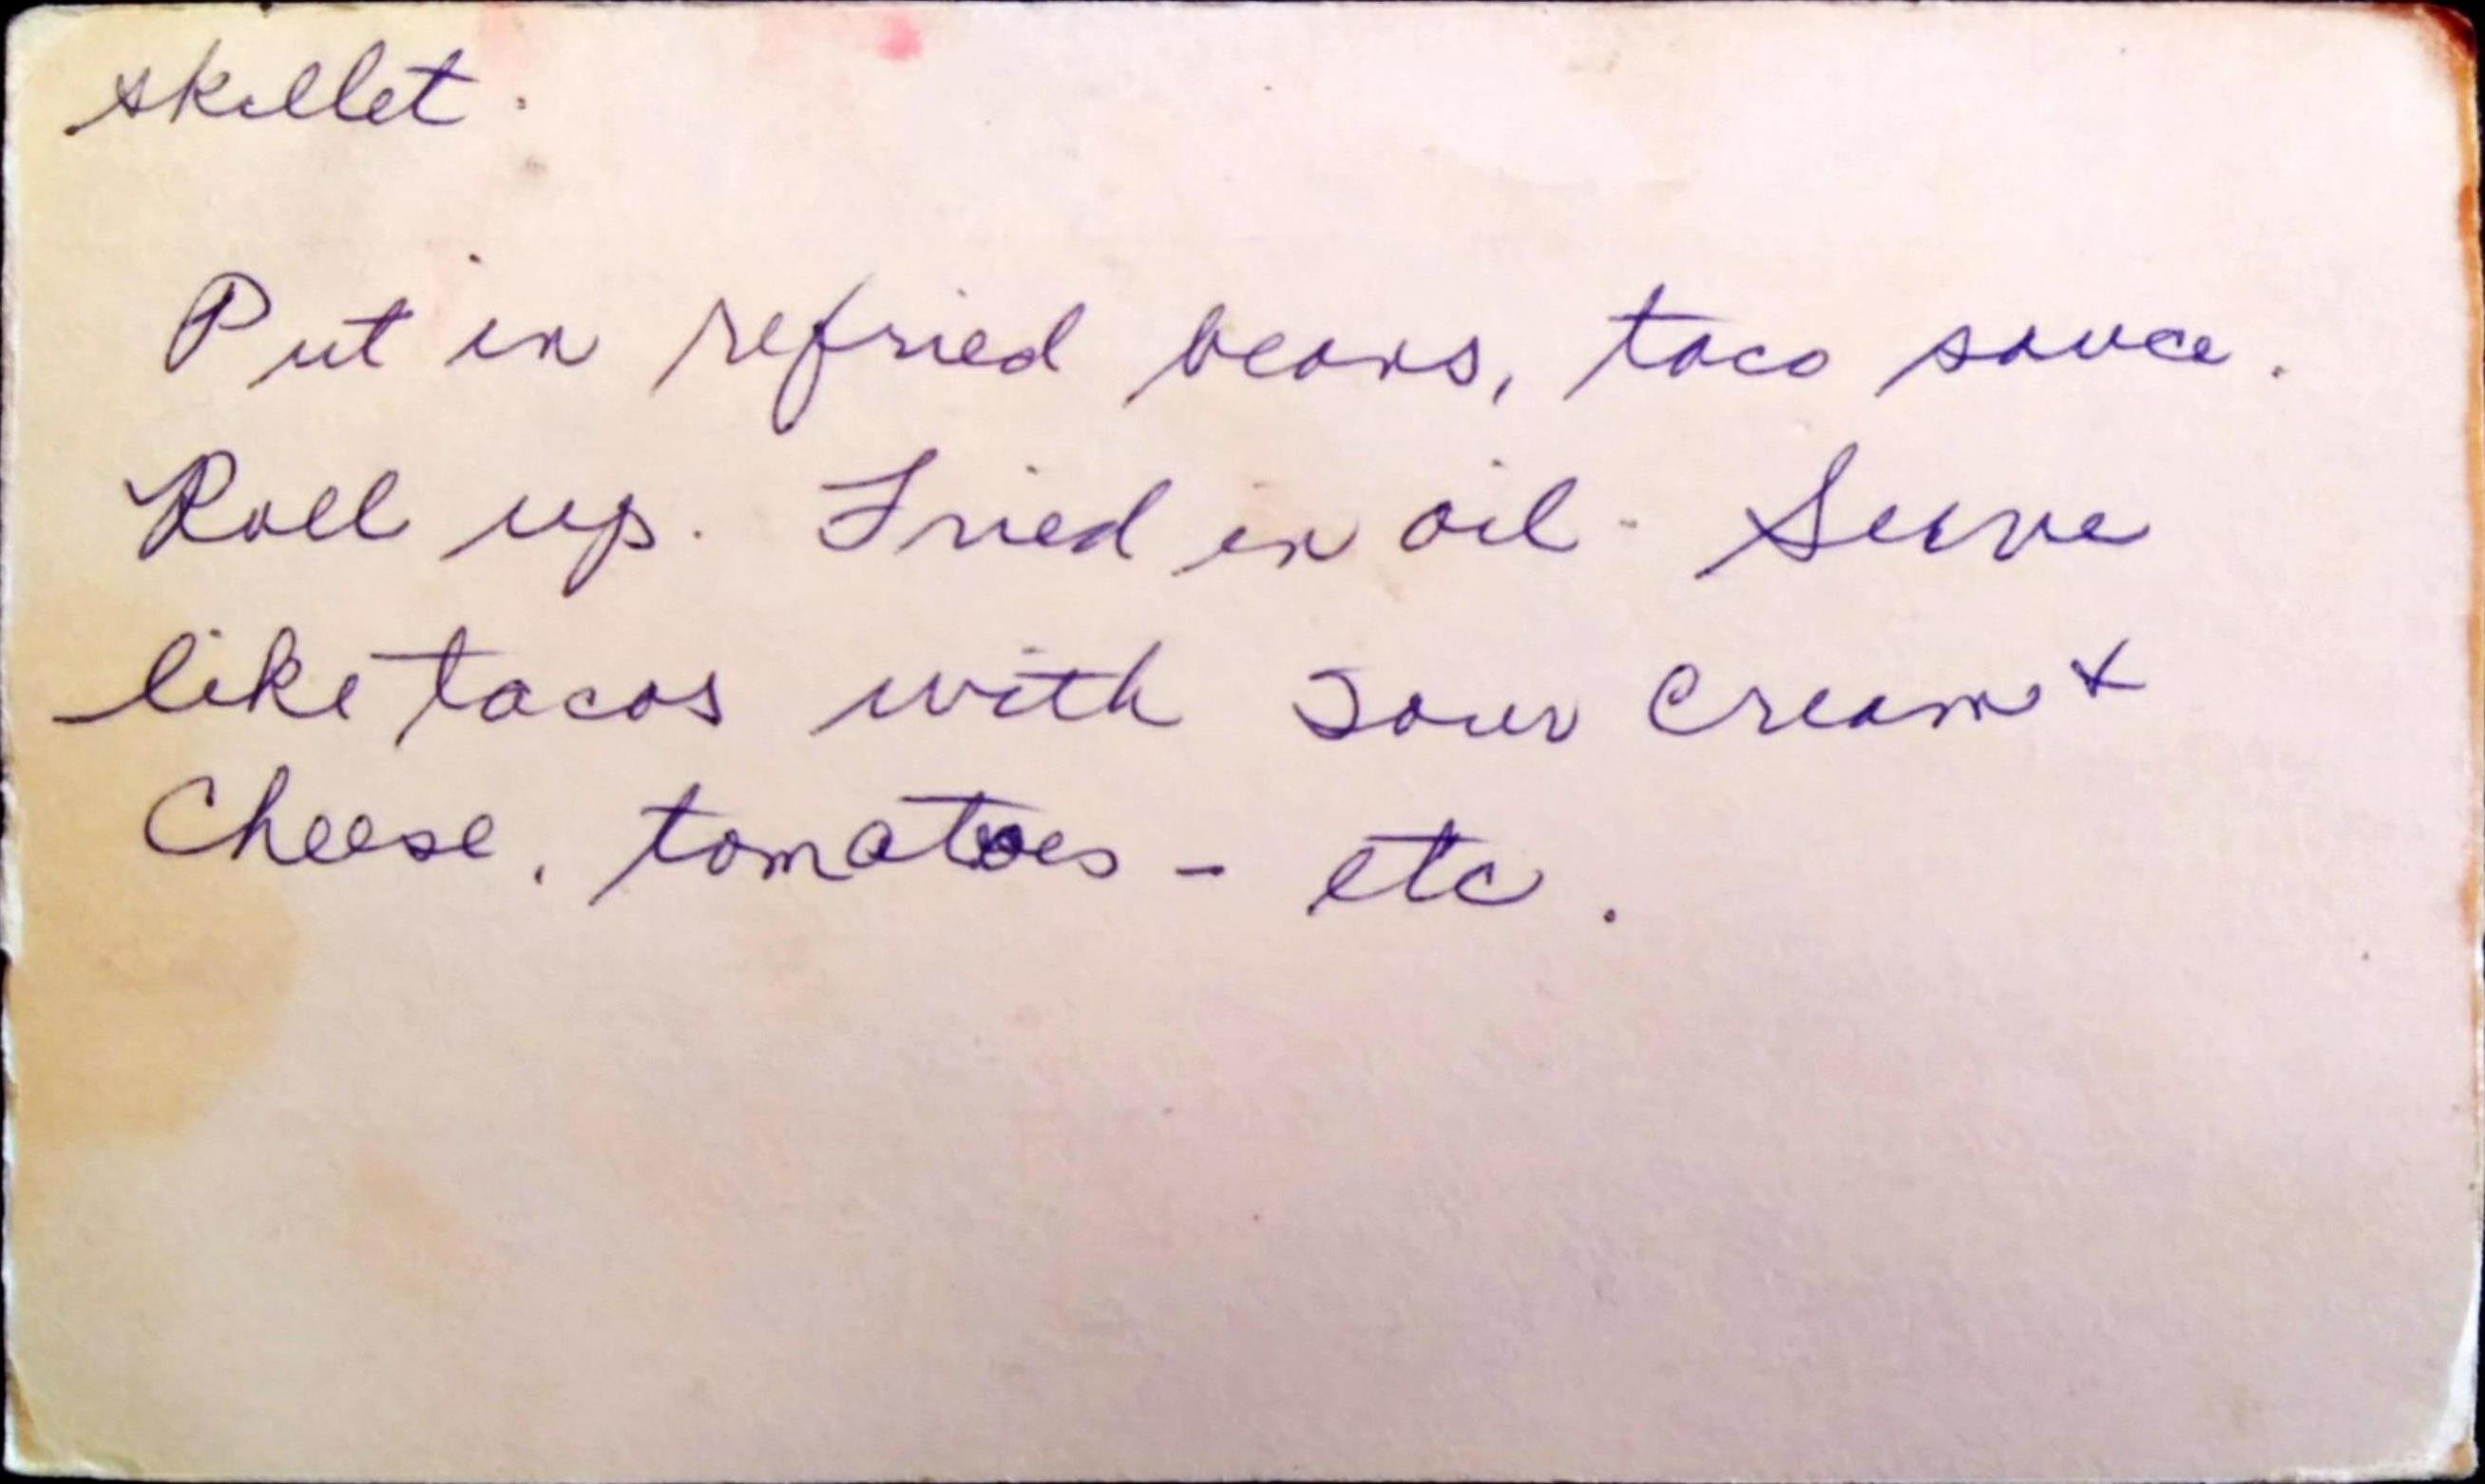 skillet.
Put in refried beans, taco sauce.
Roll up. Fried in oil. Serve
like tacos with sour cream &
Cheese, tomatoes - etc.